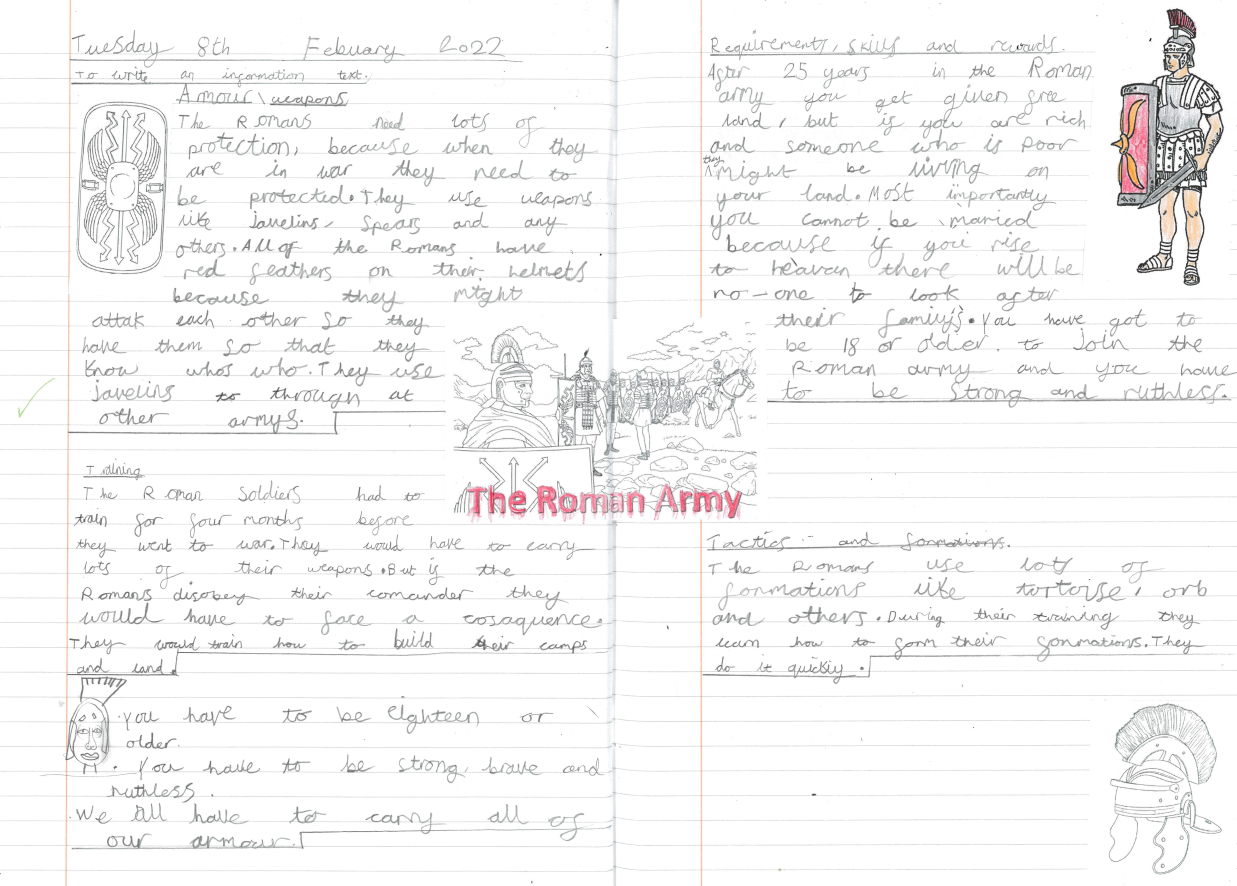 Tuesday 8th Febuary 2022
To write an information text.
Armour \ weapons
The Romans need lots of
protection, because when they
are in war they need to
be protected. They use weapons
like javelins, spears and any
others. All of the Romans have
red feathers on their helmets
because they might
attak each other so they
have them so that they
know whos who. They use
javelins to through at
other armys.
Training
The Roman soldiers had to
train for four months before
they went to war. They would have to carry
lots of their weapons. But if the
Romans disobey their comander they
would have to face a cosaquence.
They would train how to build their camps
and land.
· You have to be eighteen or
older.
· You have to be strong, brave and
ruthless.
· We all have to carry all of
our armour.
The Roman Army
Requirements, skills and rewards.
After 25 years in the Roman
army you get given free
land, but if you are rich
and someone who is poor
they might be living on
your land. Most importantly
you cannot be maried
because if you rise
to heavan there will be
no-one to look after
their family. You have got to
be 18 or older to join the
Roman army and you have
to be strong and ruthless.
Tactics and formations.
The Romans use lots of
formations like tortoise, orb
and others. During their training they
learn how to form their formations. They
do it quickly.